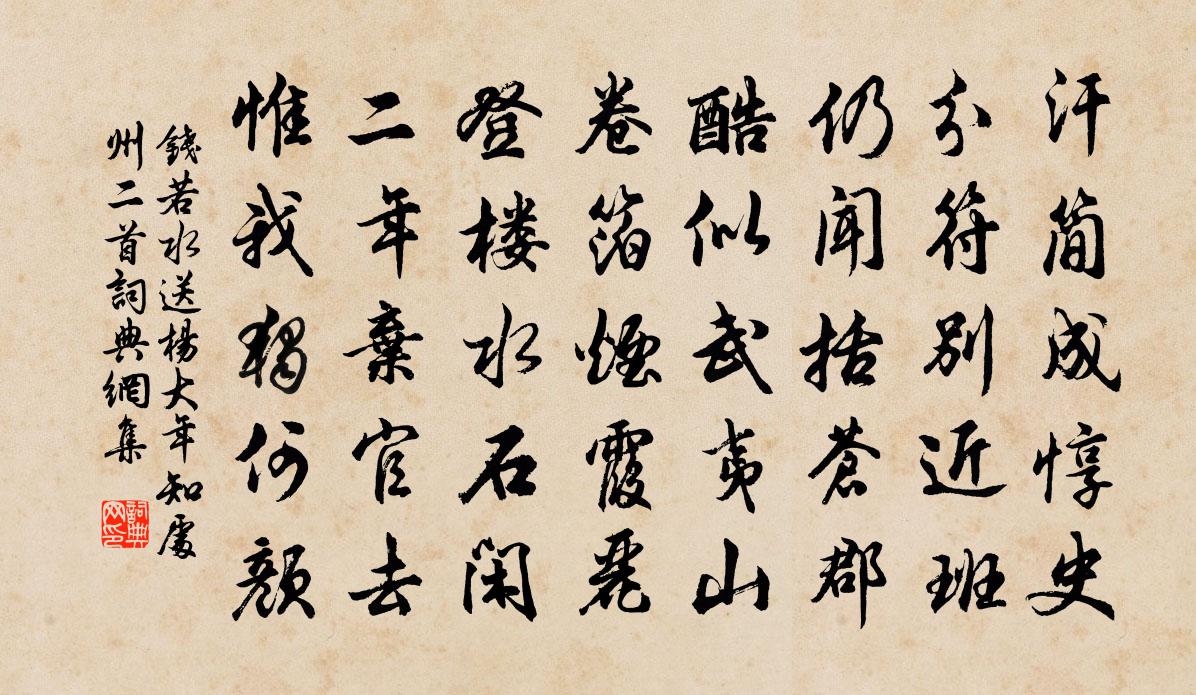 汗简成惇史
分符别近班
仍闻括苍郡
酷似武夷山
卷箔烟霞丽
登楼水石闲
二年弃官去
惟我独何颜
錢若水送楊大年知處
州二首詞典網集
詞典网印